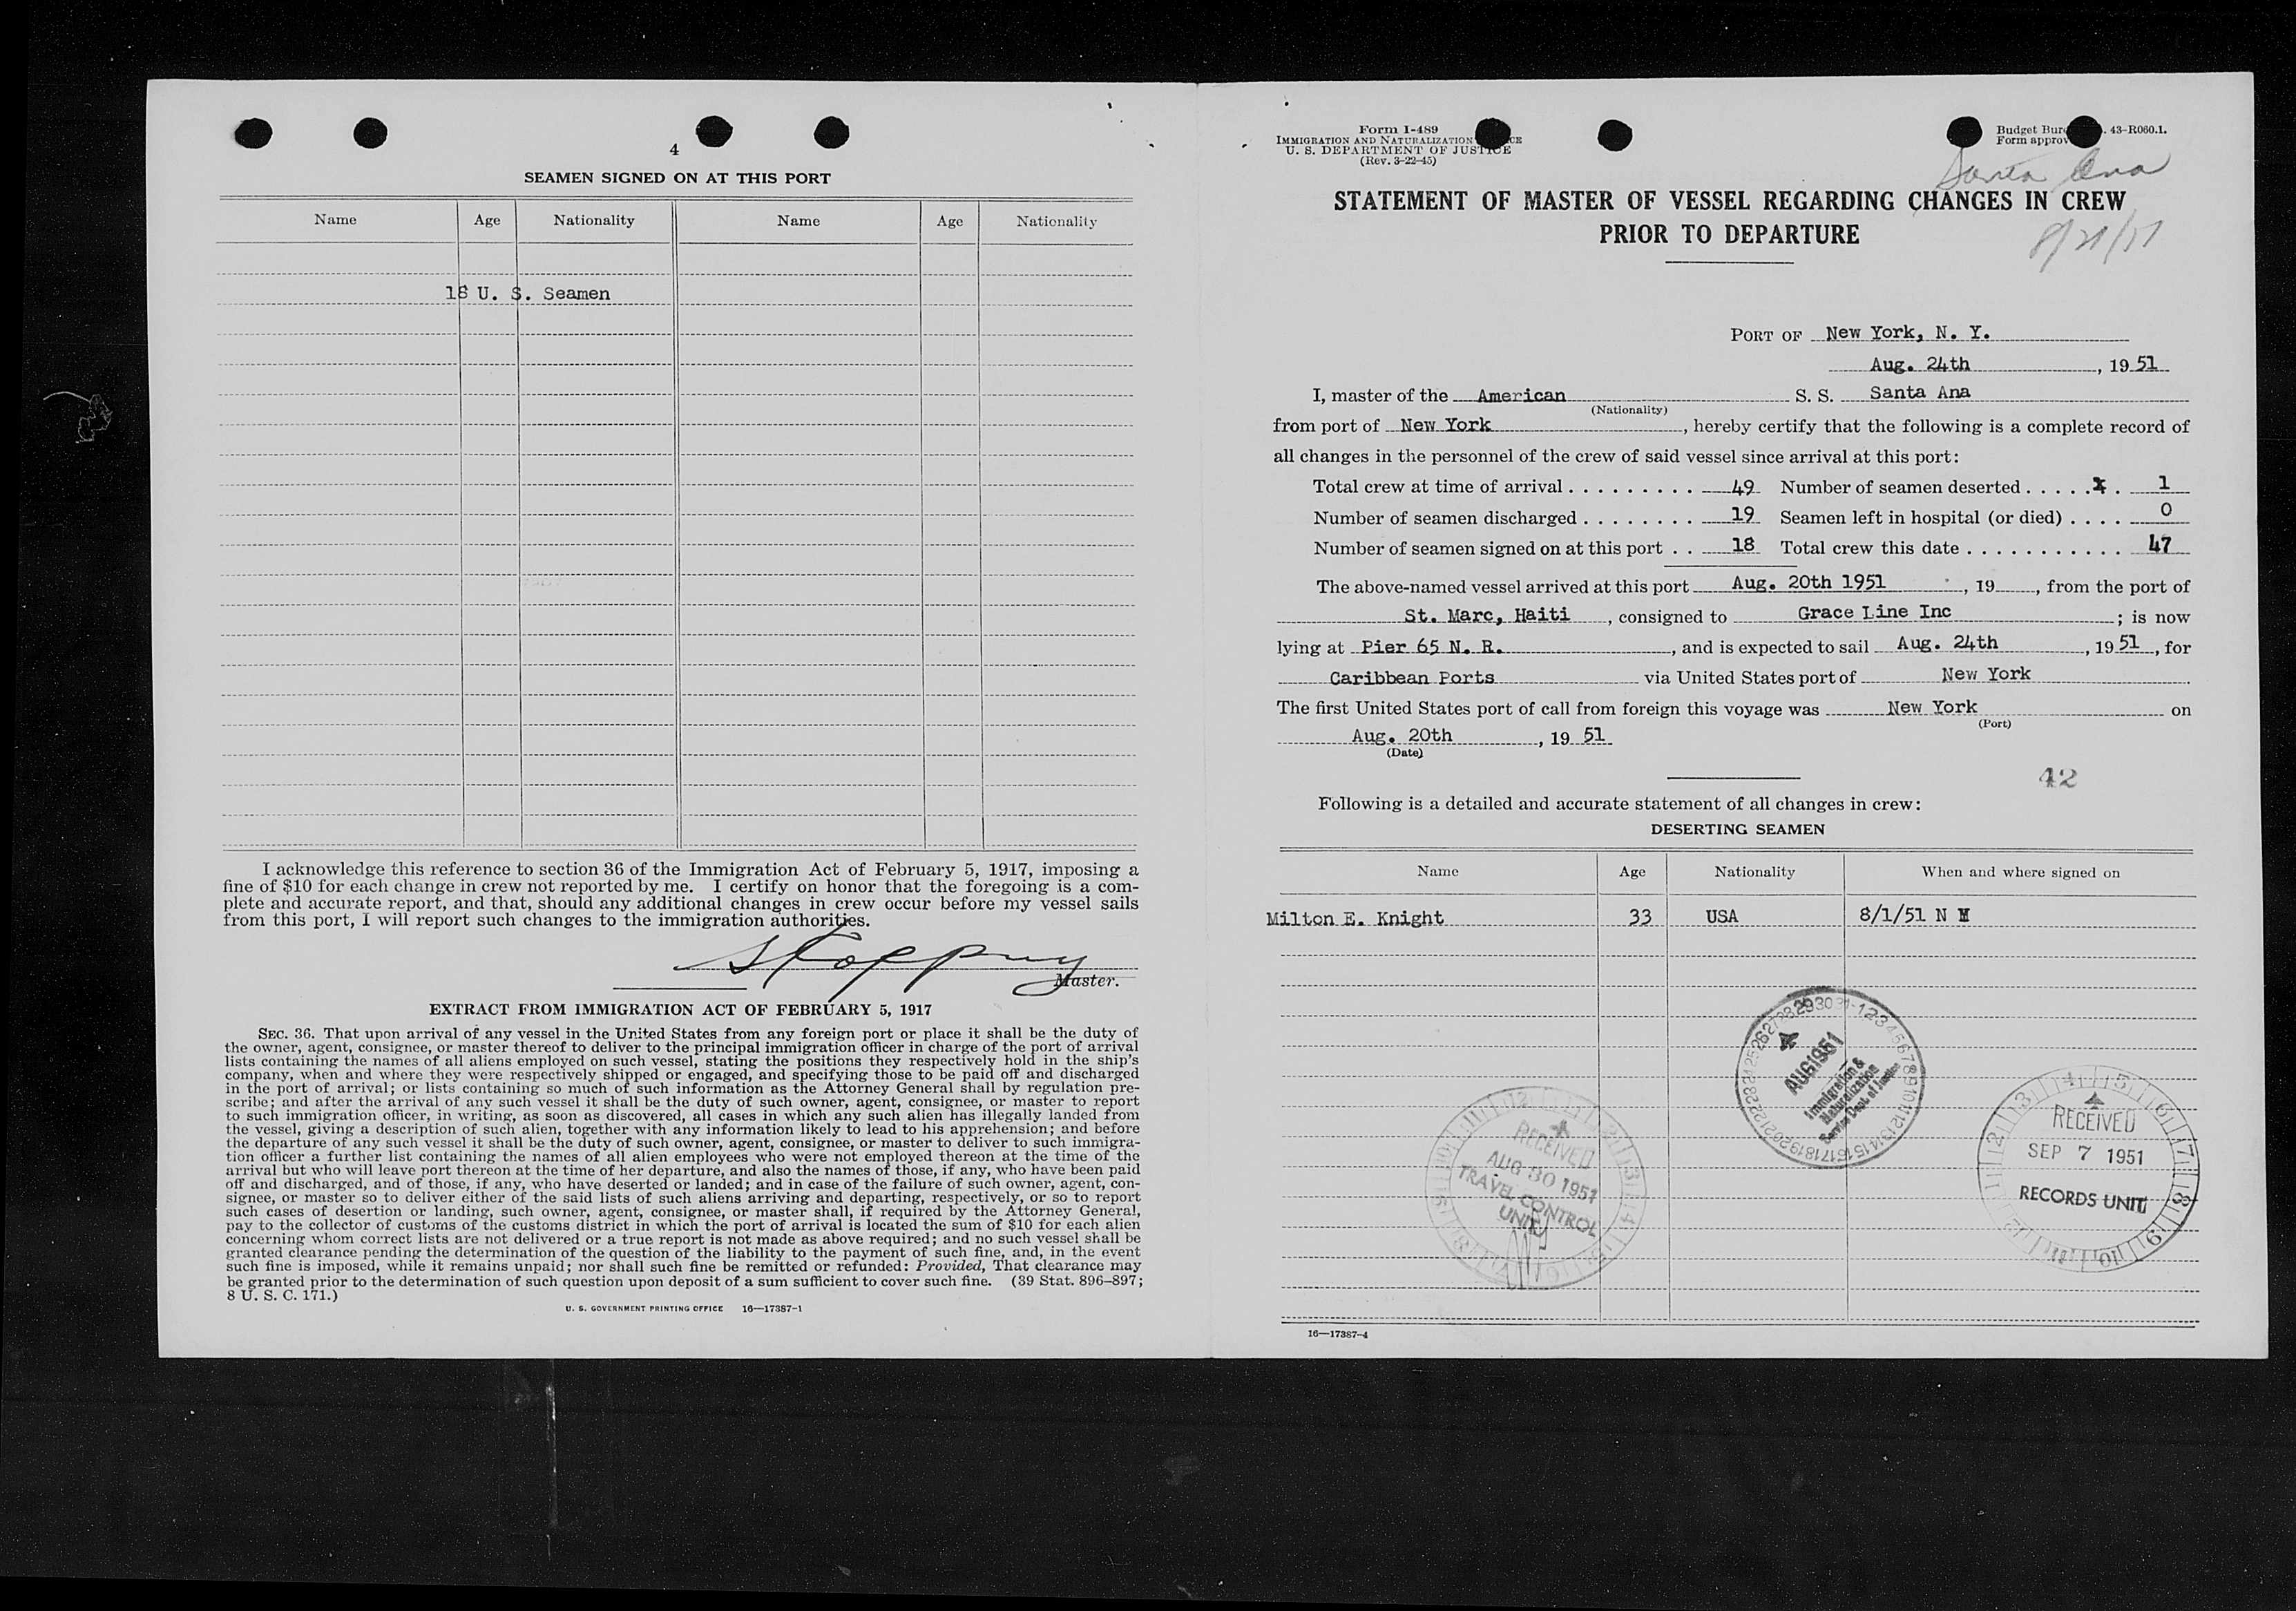 4
SEAMEN SIGNED ON AT THIS PORT
Name Age Nationality Name Age Nationality
18 U. S. Seamen
I acknowledge this reference to section 36 of the Immigration Act of February 5, 1917, imposing a
fine of $10 for each change in crew not reported by me. I certify on honor that the foregoing is a com-
plete and accurate report, and that, should any additional changes in crew occur before my vessel sails
from this port, I will report such changes to the immigration authorities.
Master.
EXTRACT FROM IMMIGRATION ACT OF FEBRUARY 5, 1917
SEC. 36. That upon arrival of any vessel in the United States from any foreign port or place it shall be the duty of
the owner, agent, consignee, or master thereof to deliver to the principal immigration officer in charge of the port of arrival
lists containing the names of all aliens employed on such vessel, stating the positions they respectively hold in the ship's
company, when and where they were respectively shipped or engaged, and specifying those to be paid off and discharged
in the port of arrival; or lists containing so much of such information as the Attorney General shall by regulation pre-
scribe; and after the arrival of any such vessel it shall be the duty of such owner, agent, consignee, or master to report
to such immigration officer, in writing, as soon as discovered, all cases in which any such alien has illegally landed from
the vessel, giving a description of such alien, together with any information likely to lead to his apprehension; and before
the departure of any such vessel it shall be the duty of such owner, agent, consignee, or master to deliver to such immigra-
tion officer a further list containing the names of all alien employees who were not employed thereon at the time of the
arrival but who will leave port thereon at the time of her departure, and also the names of those, if any, who have been paid
off and discharged, and of those, if any, who have deserted or landed; and in case of the failure of such owner, agent, con-
signee, or master so to deliver either of the said lists of such aliens arriving and departing, respectively, or so to report
such cases of desertion or landing, such owner, agent, consignee, or master shall, if required by the Attorney General,
pay to the collector of customs of the customs district in which the port of arrival is located the sum of $10 for each alien
concerning whom correct lists are not delivered or a true report is not made as above required; and no such vessel shall be
granted clearance pending the determination of the question of the liability to the payment of such fine, and, in the event
such fine is imposed, while it remains unpaid; nor shall such fine be remitted or refunded: Provided, That clearance may
be granted prior to the determination of such question upon deposit of a sum sufficient to cover such fine. (39 Stat. 896–897;
8 U. S. C. 171.)
U. S. GOVERNMENT PRINTING OFFICE 16—17387-1
Form I-489
IMMIGRATION AND NATURALIZATION
U. S. DEPARTMENT OF JUSTICE
(Rev. 3-22-45)
Budget 43-R060.1.
Form
Santa Ana
STATEMENT OF MASTER OF VESSEL REGARDING CHANGES IN CREW
PRIOR TO DEPARTURE
PORT OF New York, N. Y.
Aug. 24th, 19 51
I, master of the American S. S. Santa Ana
(Nationality)
from port of New York, hereby certify that the following is a complete record of
all changes in the personnel of the crew of said vessel since arrival at this port:
Total crew at time of arrival . . . . . . . . . 49 Number of seamen deserted . . . . . . 1
Number of seamen discharged . . . . . . . . 19 Seamen left in hospital (or died) . . . . 0
Number of seamen signed on at this port . . 18 Total crew this date . . . . . . . . . . . 47
The above-named vessel arrived at this port Aug. 20th 1951, 19, from the port of
St. Marc, Haiti, consigned to Grace Line Inc; is now
lying at Pier 65 N. R., and is expected to sail Aug. 24th, 19 51, for
Caribbean Ports via United States port of New York
The first United States port of call from foreign this voyage was New York on
(Port)
Aug. 20th, 19 51
(Date)
42
Following is a detailed and accurate statement of all changes in crew:
DESERTING SEAMEN
Name Age Nationality When and where signed on
Milton E. Knight 33 USA 8/1/51 N Y
AUG 1951
Immigration &
Naturalization
Service Dept. of Justice
RECEIVED
AUG 30 1951
TRAVEL CONTROL
UNIT
RECEIVED
SEP 7 1951
RECORDS UNIT
16—17387-4